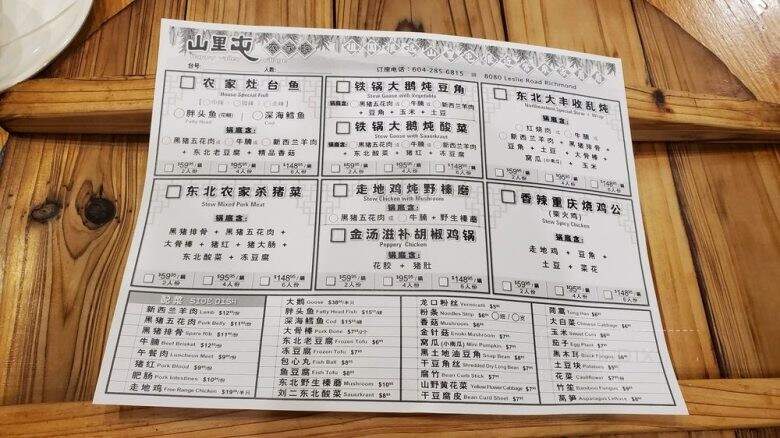 山里屯
台号: 人数: 订座电话: 604-285-6815 8080 Leslie Road Richmond
农家灶台鱼
House Special Fish
胖头鱼(花鲢) 深海鳕鱼
Fatty Head Cod
锅底含:
黑猪五花肉 or 牛腩 or 新西兰羊肉
+ 东北老豆腐 + 精品香菇
$59.95/锅 2人份 $95.95/锅 4人份 $148.95/锅 6人份
铁锅大鹅炖豆角
Stew Goose with Vegetable
黑猪五花肉 or 牛腩 or 新西兰羊肉
+ 豆角 + 玉米 + 土豆
铁锅大鹅炖酸菜
Stew Goose with Sauerkraut
锅底含:
黑猪五花肉 or 牛腩 or 新西兰羊肉
+ 东北酸菜 + 猪红 + 冻豆腐
$59.95/锅 2人份 $95.95/锅 4人份 $148.95/锅 6人份
东北大丰收乱炖
锅底含:
红烧肉 or 牛腩 or
新西兰羊肉 + 黑猪排骨 +
豆角 + 土豆 + 大骨棒 +
窝瓜(小南瓜) + 玉米
2人份 4人份 6人份
东北农家杀猪菜
Stew Mixed Pork Meat
锅底含:
黑猪排骨 + 黑猪五花肉 +
大骨棒 + 猪红 + 猪大肠 +
东北酸菜 + 冻豆腐
$59.95/锅 2人份 $95.95/锅 4人份 $148.95/锅 6人份
走地鸡炖野榛蘑
Stew Chicken with Mushroom
锅底含:
黑猪五花肉 or 牛腩 + 野生榛蘑
金汤滋补胡椒鸡锅
Peppery Chicken
锅底含:
花胶 + 猪肚
$59.95/锅 2人份 $95.95/锅 4人份 $148.95/锅 6人份
香辣重庆烧鸡公
(柴火鸡)
Stew Spicy Chicken
锅底含:
走地鸡 + 豆角 +
土豆 + 菜花
$59.95/锅 2人份 $95.95/锅 4人份 $148.95/锅 6人份
配菜 SIDE DISH
新西兰羊肉 Lamb
黑猪五花肉 Pork Belly
黑猪排骨 Spare Rib
牛腩 Beef Brisket
午餐肉 Luncheon Meet
猪红 Pork Blood
肥肠 Pork Intestines
走地鸡 Free Range Chicken
大鹅 Goose
胖头鱼 Fatty Head Fish
深海鳕鱼 Cod
大骨棒 Pork Bone
老豆腐 Frozen Tofu
冻豆腐 Frozen Tofu
包心丸 Fish Ball
鱼豆腐 Fish Tofu
东北野生榛蘑 Mushroom
刘二东北酸菜 Sauerkrant
龙口粉丝 Vermicelli
粉条 Noodles Strip
香菇 Mushroom
金针菇 Enoki Mushroom
窝瓜(小南瓜) Mini Pumpkin
黑土地油豆角 Snap Bean
干豆角丝 Shredded Dry Long Bean
腐竹 Bean Curb Stick
山野黄花菜 Yellow Flower Cabbage
干豆腐皮 Bean Curd Sheet
茼蒿 Tong Hao
大白菜 Chinese Cabbage
玉米 Sweet Corn
茄子 Egg Plant
黑木耳 Black Fungus
土豆块 Potatoes
花菜 Cauliflower
竹笙 Bamboo Fungus
莴笋 Asparagus Lettuce